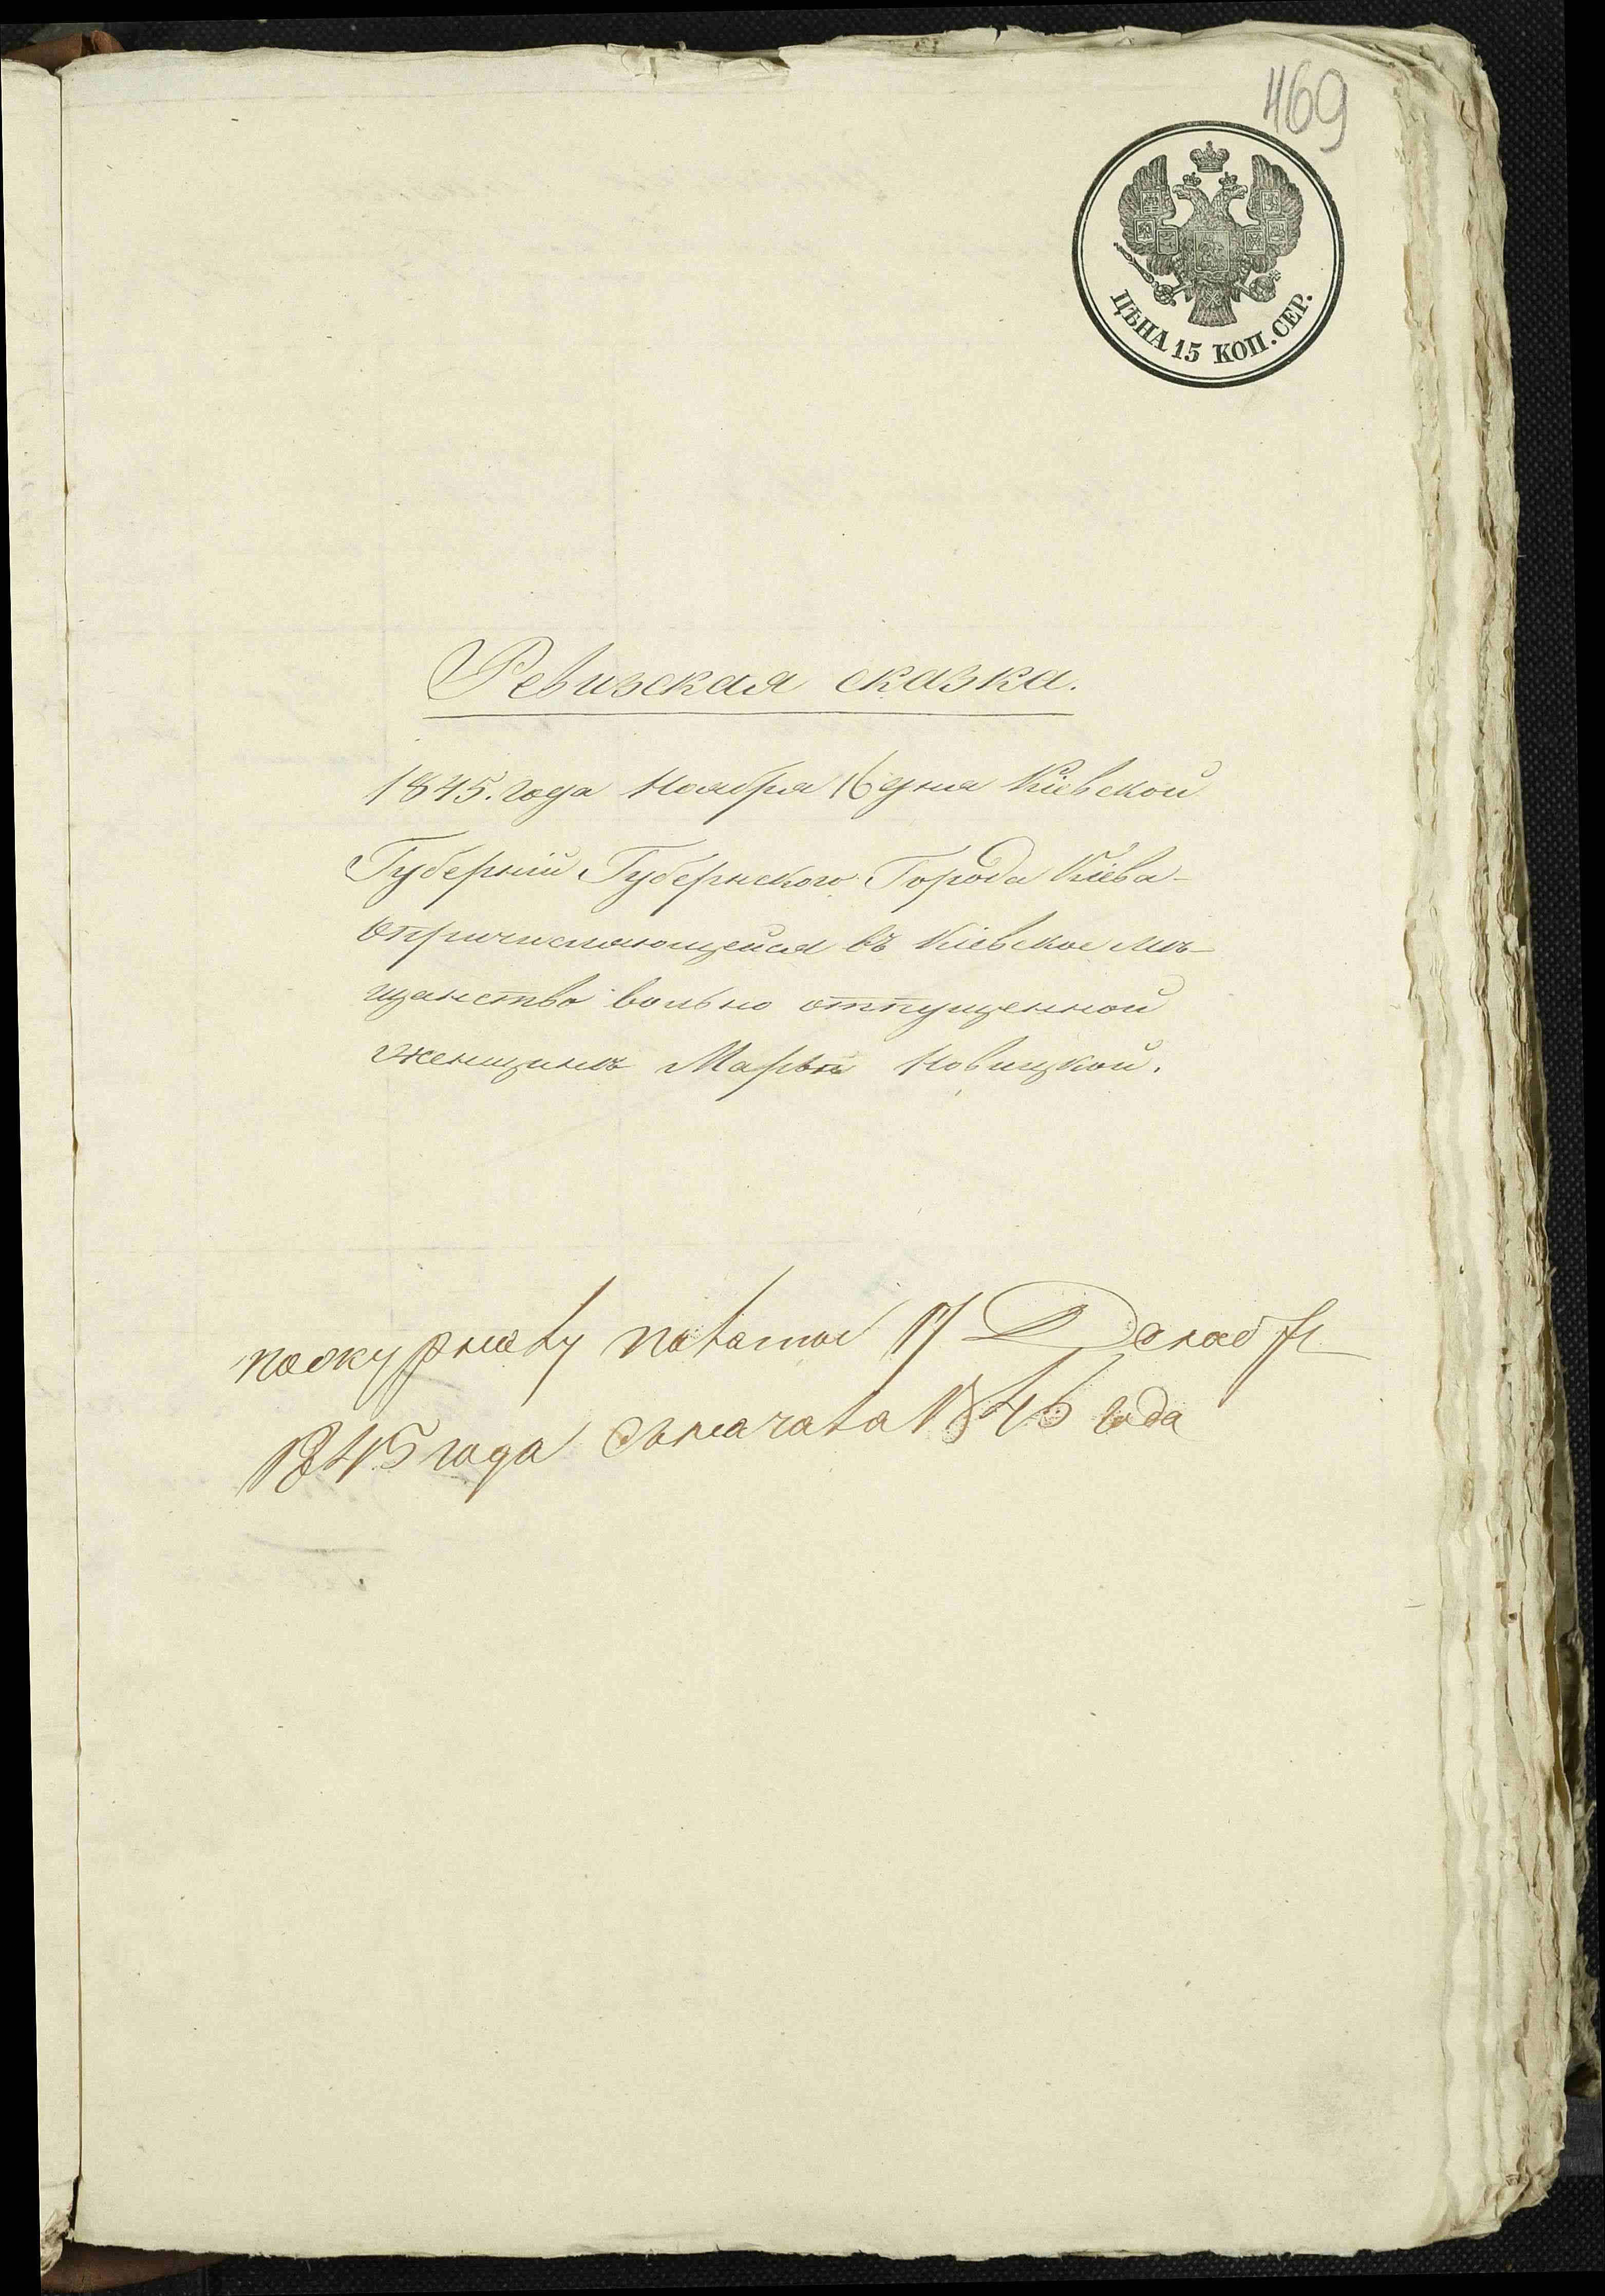 469
ЦѢНА 15 КОП. СЕР.
Ревизская сказка.
1845. года Ноября 16 дня Кіевской
Губерніи Губернского Города Кіева
о причисляющейся въ Кіевское мѣ-
щанство вольно отпущенной
женщинѣ Марьѣ Новицкой.
по журналу палаты 17 Декабр
1845 года съ начала 1846 года